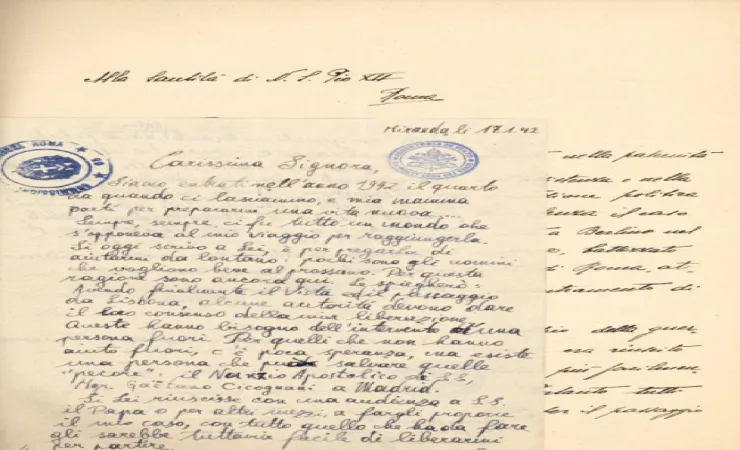 Alla Santità di N. S. Pio XII
Roma
Miranda, li 17.1.42
ROMA
Carissima Signora,
Siamo entrati nell'anno 1942 il quarto
da quando ci lasciammo, e mia mamma
partì per prepararmi una vita nuova....
Sempre, sempre ci fu tutto un mondo che
s'opponeva al mio viaggio per raggiungerla.
Si oggi scrivo a Lei, è per pregarla di
aiutarmi da lontano: pochi sono gli uomini
che vogliono bene al prossimo. Per questa
ragione sono ancora qui. Le spagherò:
Avendo finalmente il Vista ed il passaggio
da Lisbona, alcune autorità devono dare
il loro consenso della mia liberazione.
Queste hanno bisogno dell'intervento di una
persona fuori. Per quelli che non hanno
aiuto fuori, c'è poca speranza, ma esiste
una persona che può salvare quelle
"pecore": il Nunzio Apostolico di S.S.,
Mgr. Gaëtano Cicognani a Madrid.
Si Lei riuscisse con una audienza a S.S.
il Papa o per altri mezzi, a fargli proporre
il mio caso, con tutto quello che ha da fare
gli sarebbe tuttavia facile di liberarmi
per partire.
nella paternità
istenza e nella
zione politica
il caso
a Berlino nel
e, battezzato
di Roma, at-
ntramento di
della guer-
era riuscito
più
tanto tutti
il passaggio